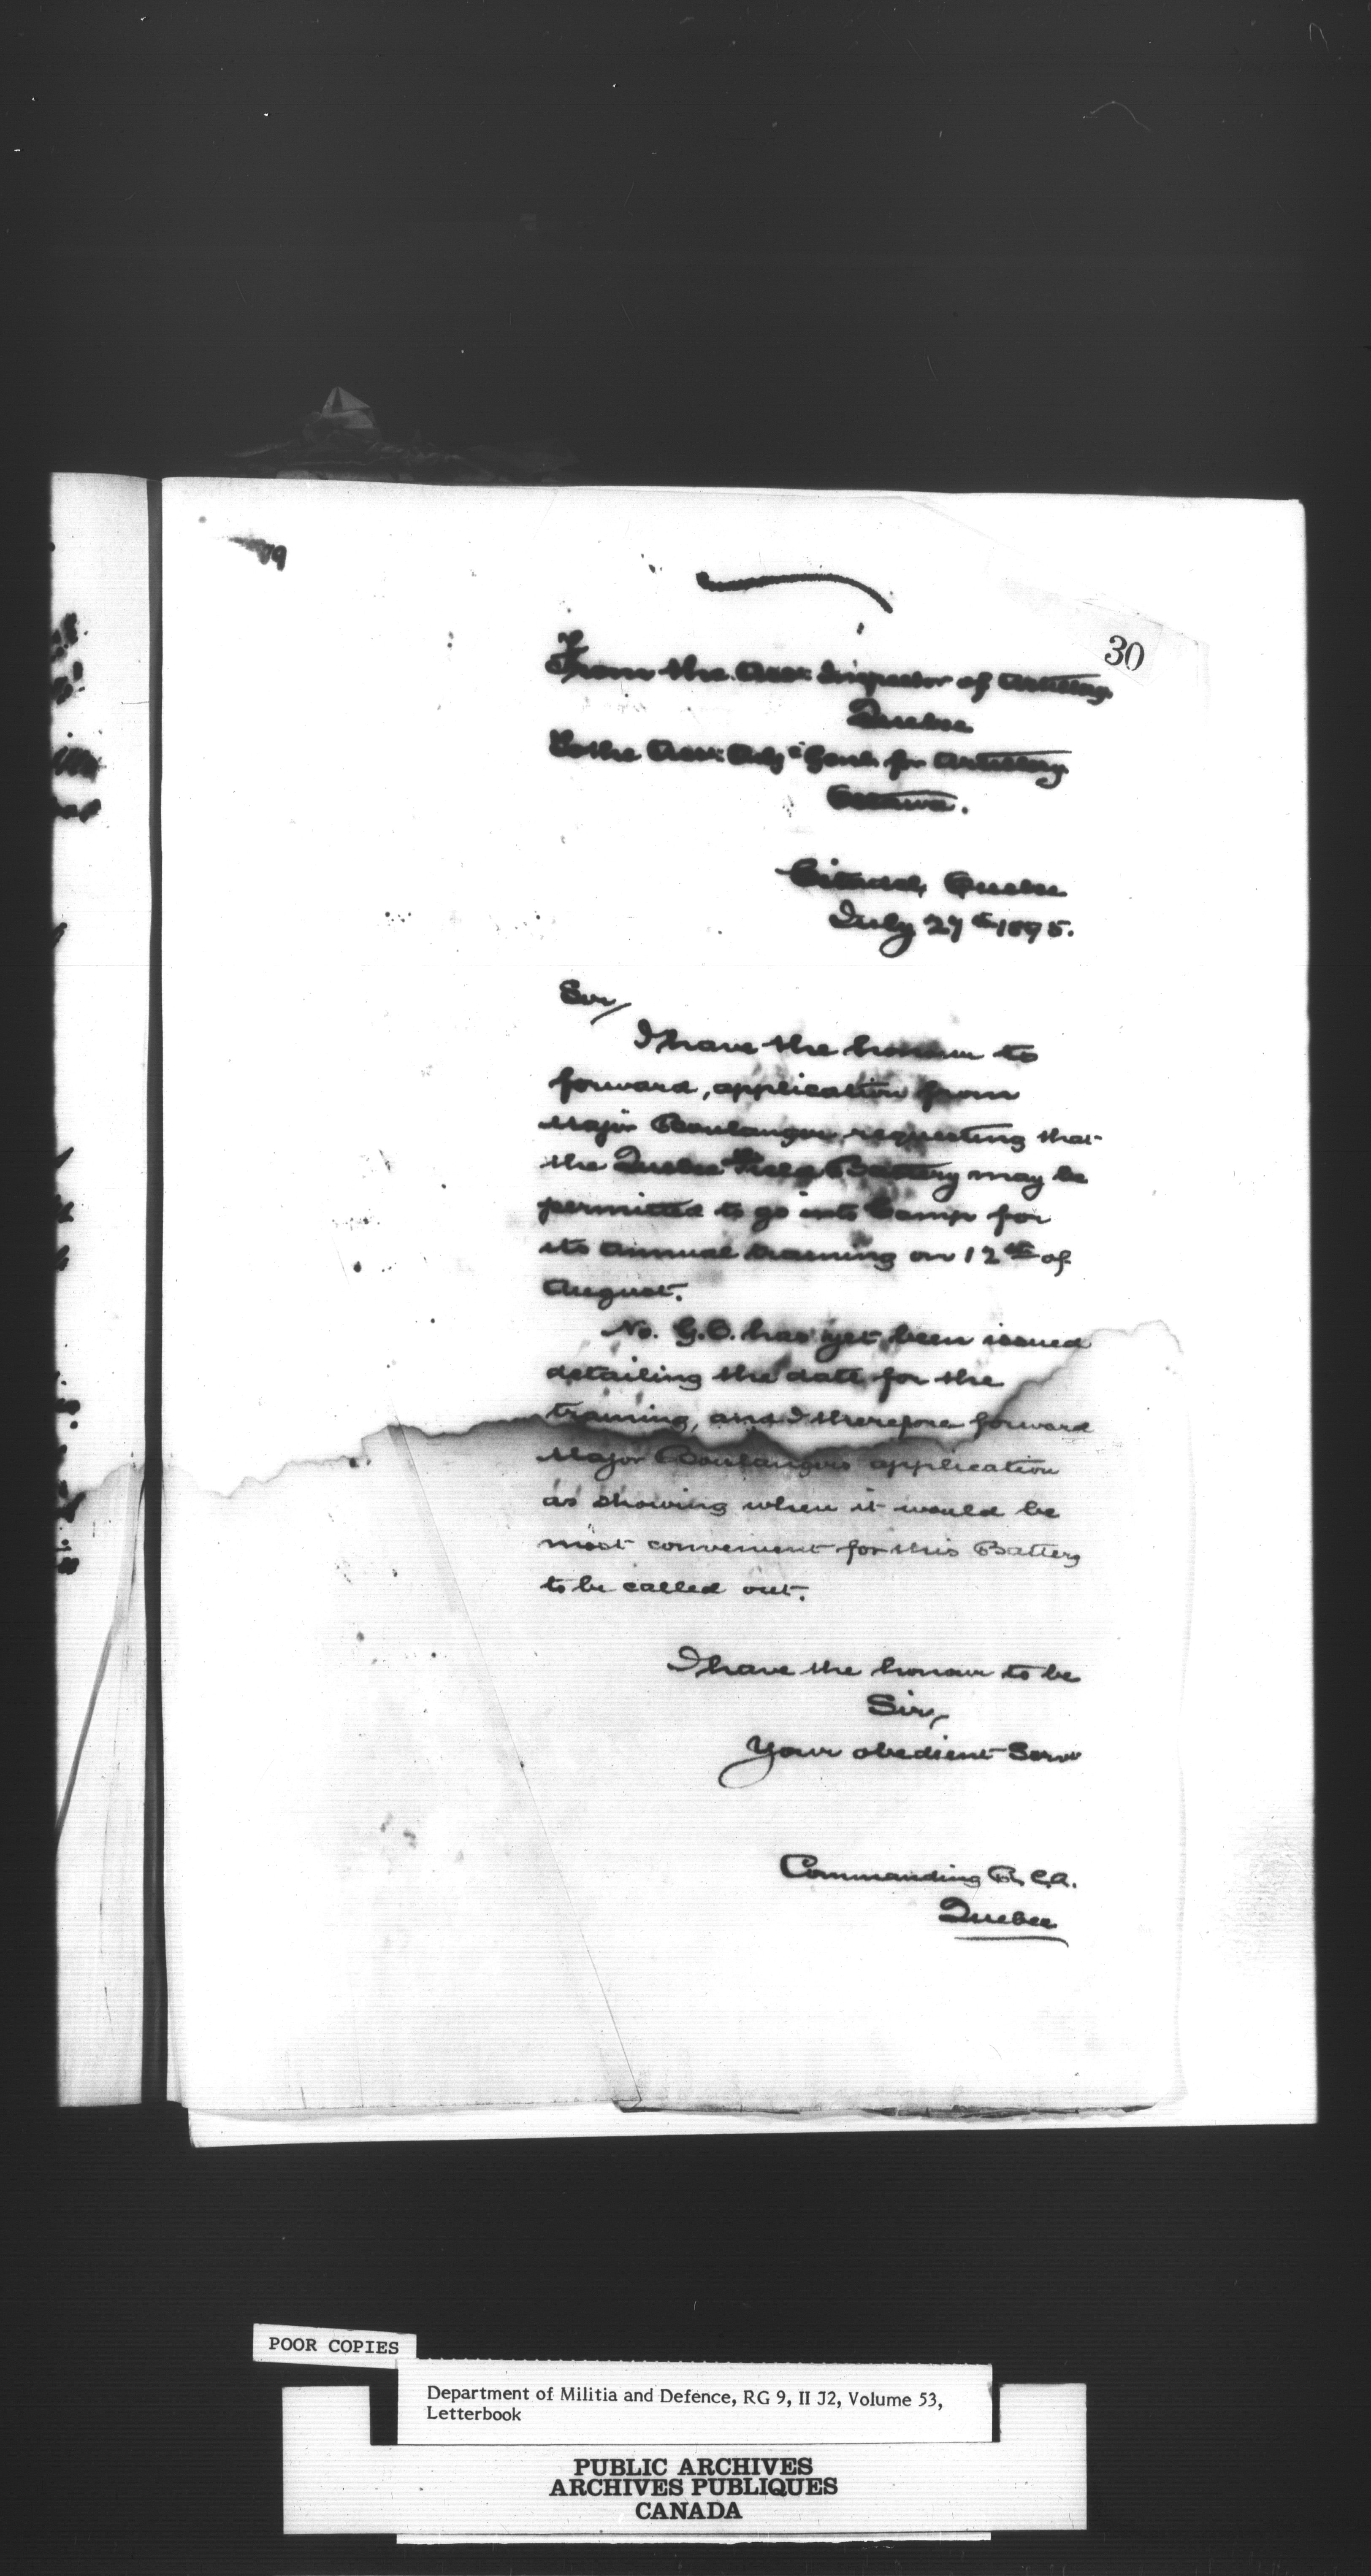 30
From the Asst: Inspector of Artillery
Quebec
To the Asst: Adjt Genl. for Artillery
Ottawa.
Citadel, Quebec
July 27th 1895.
Sir,
I have the honour to
forward, application from
Major Boulanger requesting that
the Quebec Field Battery may be
permitted to go into Camp for
its annual training on 12th of
August.
No. G.O. has yet been issued
detailing the date for the
training, and I therefore forward
Major Boulangers application
as showing when it would be
most convenient for this Battery
to be called out.
I have the honour to be
Sir,
Your obedient Serv
Commanding R.C.A.
Quebec
POOR COPIES
Department of Militia and Defence, RG 9, II J2, Volume 53,
Letterbook
PUBLIC ARCHIVES
ARCHIVES PUBLIQUES
CANADA